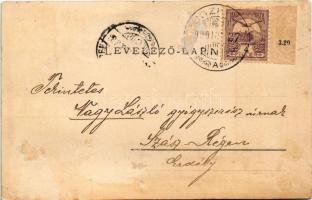 LEVELEZŐ-LAP
3.20
Tekintetes
Nagy László gyógyszerész úrnak
Szász Régen
Erdély